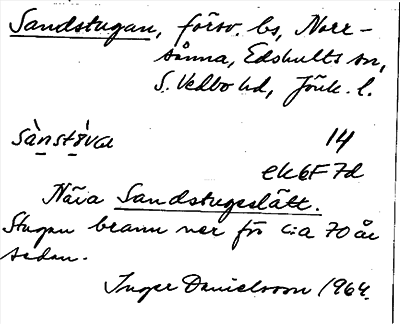 Sandstugan, försv. bs, Norr-
sånna, Edshults sn,
S. Vedbo hd, Jönk. l.
sànstọ̀va 14
ek 6F 7d
Nära Sandstugeslätt.
Stugan brann ner för c:a 70 år
sedan.
Inger Danielsson 1964.